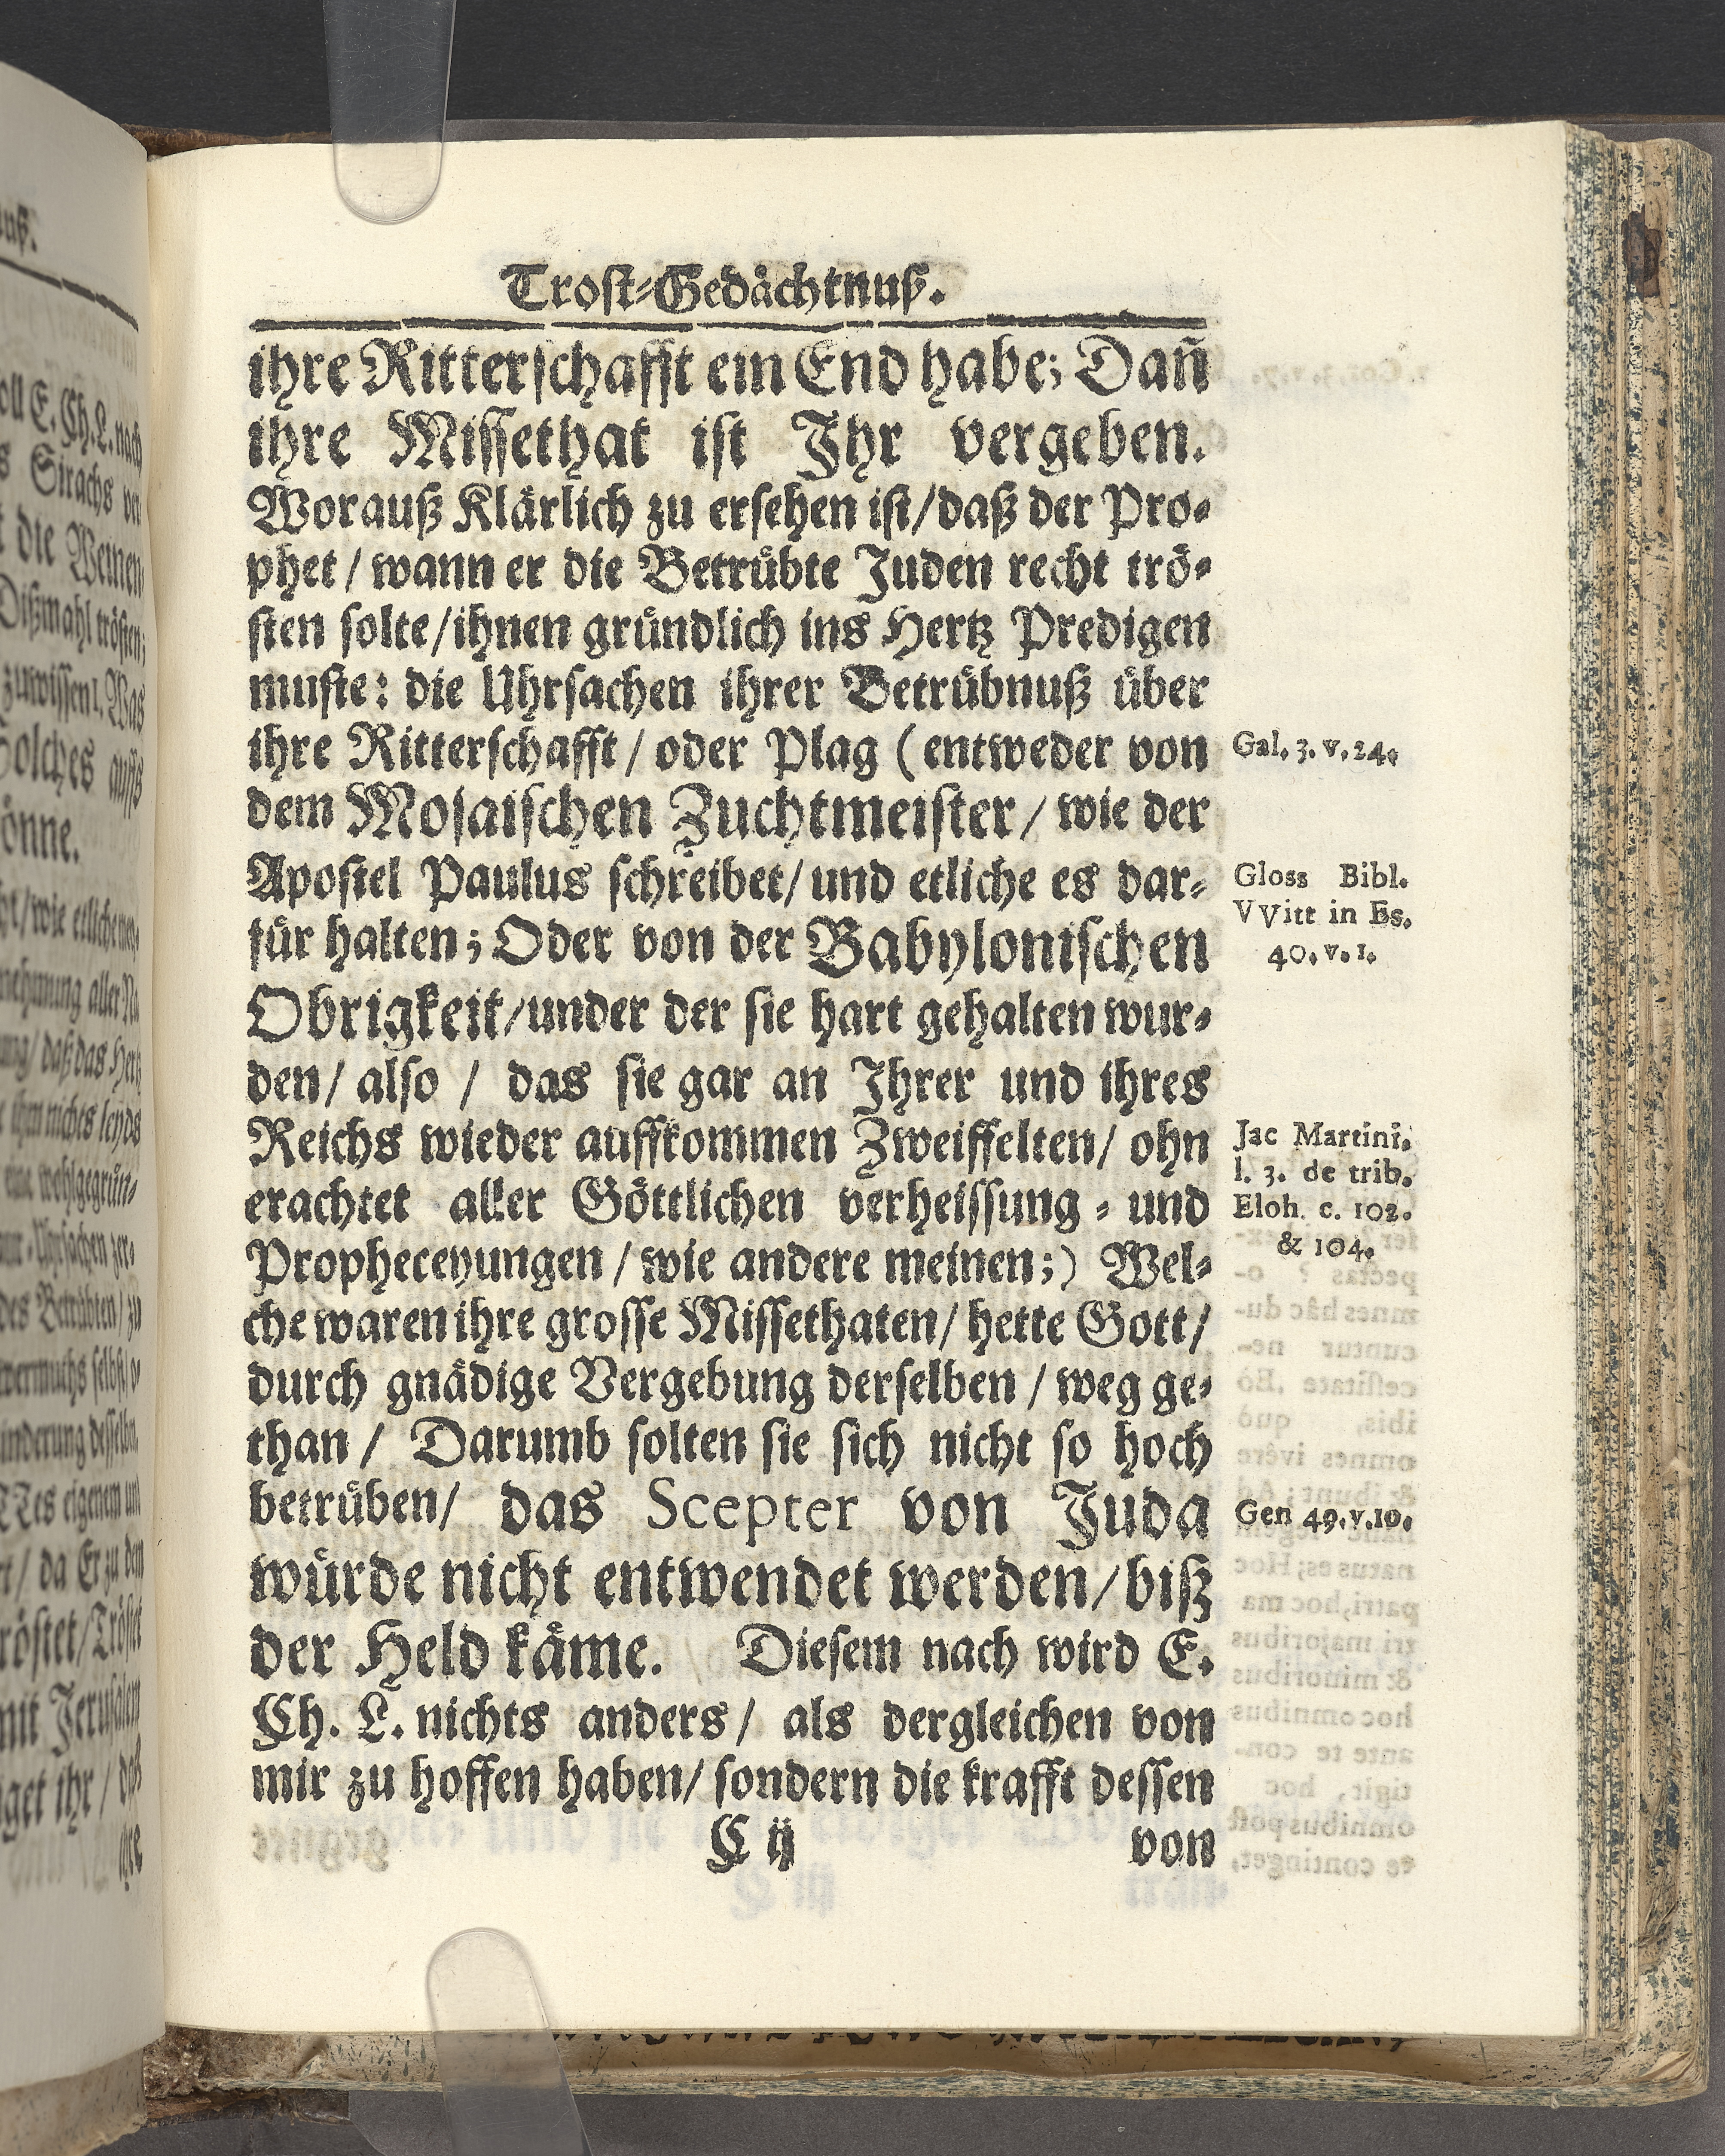 Trost-Gedächtnuß.
ihre Ritterschafft ein End habe; Dañ
ihre Missethat ist Ihr vergeben.
Worauß Klärlich zu ersehen ist/daß der Pro-
phet/ wann er die Betrübte Juden recht trö-
sten solte/ihnen gründlich ins Hertz Predigen
muste: die Uhrsachen ihrer Betrübnuß über
ihre Ritterschafft/ oder Plag (entweder von
Gal. 3. v. 24.
dem Mosaischen Zuchtmeister/ wie der
Apostel Paulus schreibet/ und etliche es dar-
Gloss Bibl.
VVitt in Es.
40. v. 1.
für halten; Oder von der Babylonischen
Obrigkeit/under der sie hart gehalten wur-
den/ also / das sie gar an Ihrer und ihres
Reichs wieder auffkommen Zweiffelten/ ohn
Jac Martini.
l. 3. de trib.
Eloh. c. 102.
& 104.
erachtet aller Göttlichen verheissung - und
Propheceyungen / wie andere meinen;) Wel-
che waren ihre grosse Missethaten/ hette Gott/
durch gnädige Vergebung derselben / weg ge-
than / Darumb solten sie sich nicht so hoch
betrüben/ das Scepter von Juda
Gen 49. v. 10.
würde nicht entwendet werden/ biß
der Held käme. Diesem nach wird E.
Ch. L. nichts anders/ als dergleichen von
mir zu hoffen haben/ sondern die krafft dessen
C ij
von